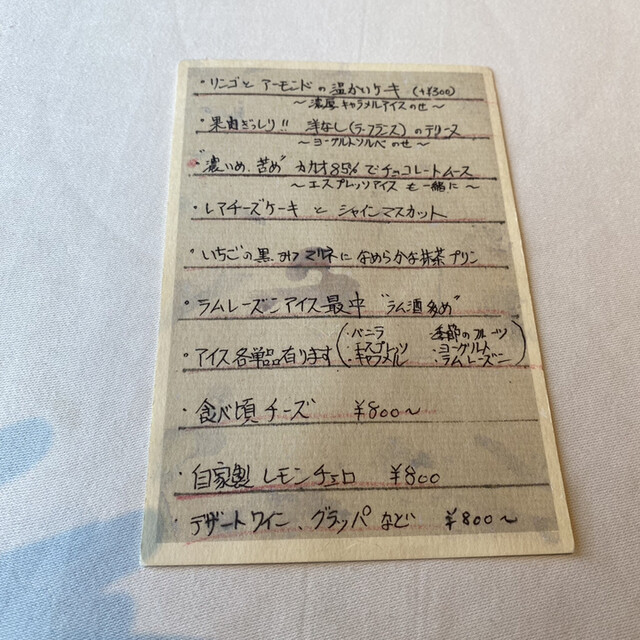 ・リンゴと アーモンドの温かいケーキ (+¥300)
〜濃厚キャラメルアイスのせ〜
・果肉ぎっしり!! 洋なし(ラ・フランス)のテリーヌ
〜ヨーグルトソルベのせ〜
・"濃いめ、苦め" カカオ85%でチョコレートムース
〜エスプレッソアイスも一緒に〜
・レアチーズケーキ と シャインマスカット
・いちごの黒みつマリネに なめらかな抹茶プリン
・ラムレーズンアイス最中 "ラム酒多め"
・アイス各単品有ります(・バニラ 季節のフルーツ
・エスプレッソ ・ヨーグルト
・キャラメル ・ラムレーズン)
・食べ頃 チーズ ¥800〜
・自家製 レモンチェロ ¥800
・デザートワイン、グラッパ など ¥800〜